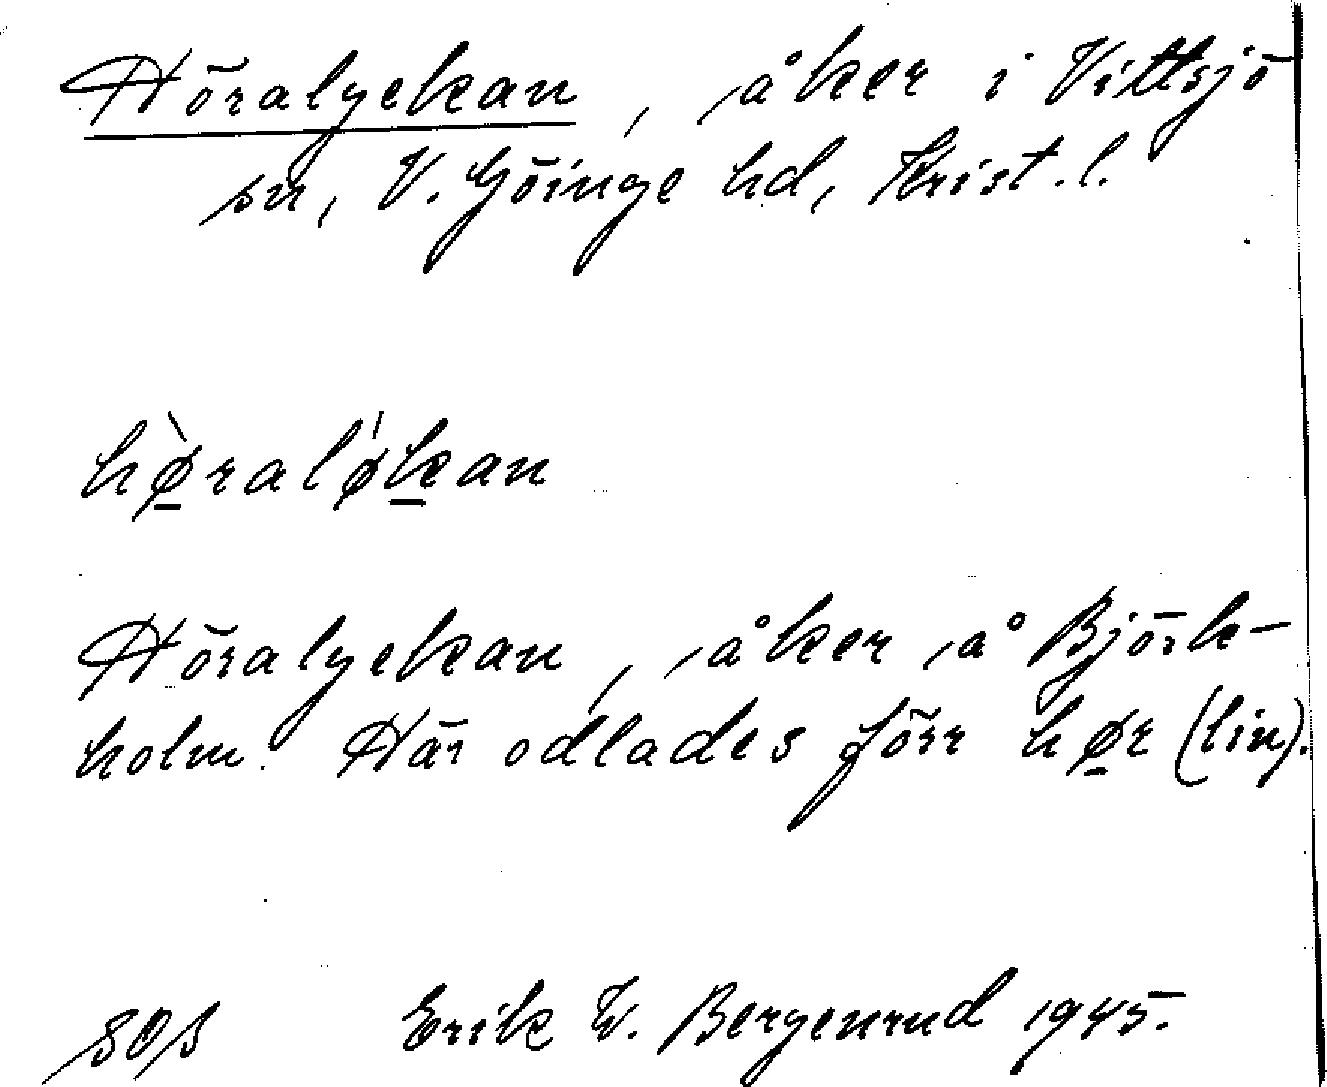 Höralyckan, åker i Vittsjö
sn, V. Göinge hd, Krist. l.
hø̀ralǿkan
Höralyckan, åker å Björk-
holm. Här odlades förr hør (lin).
SOS Erik W. Bergenrud 1945.